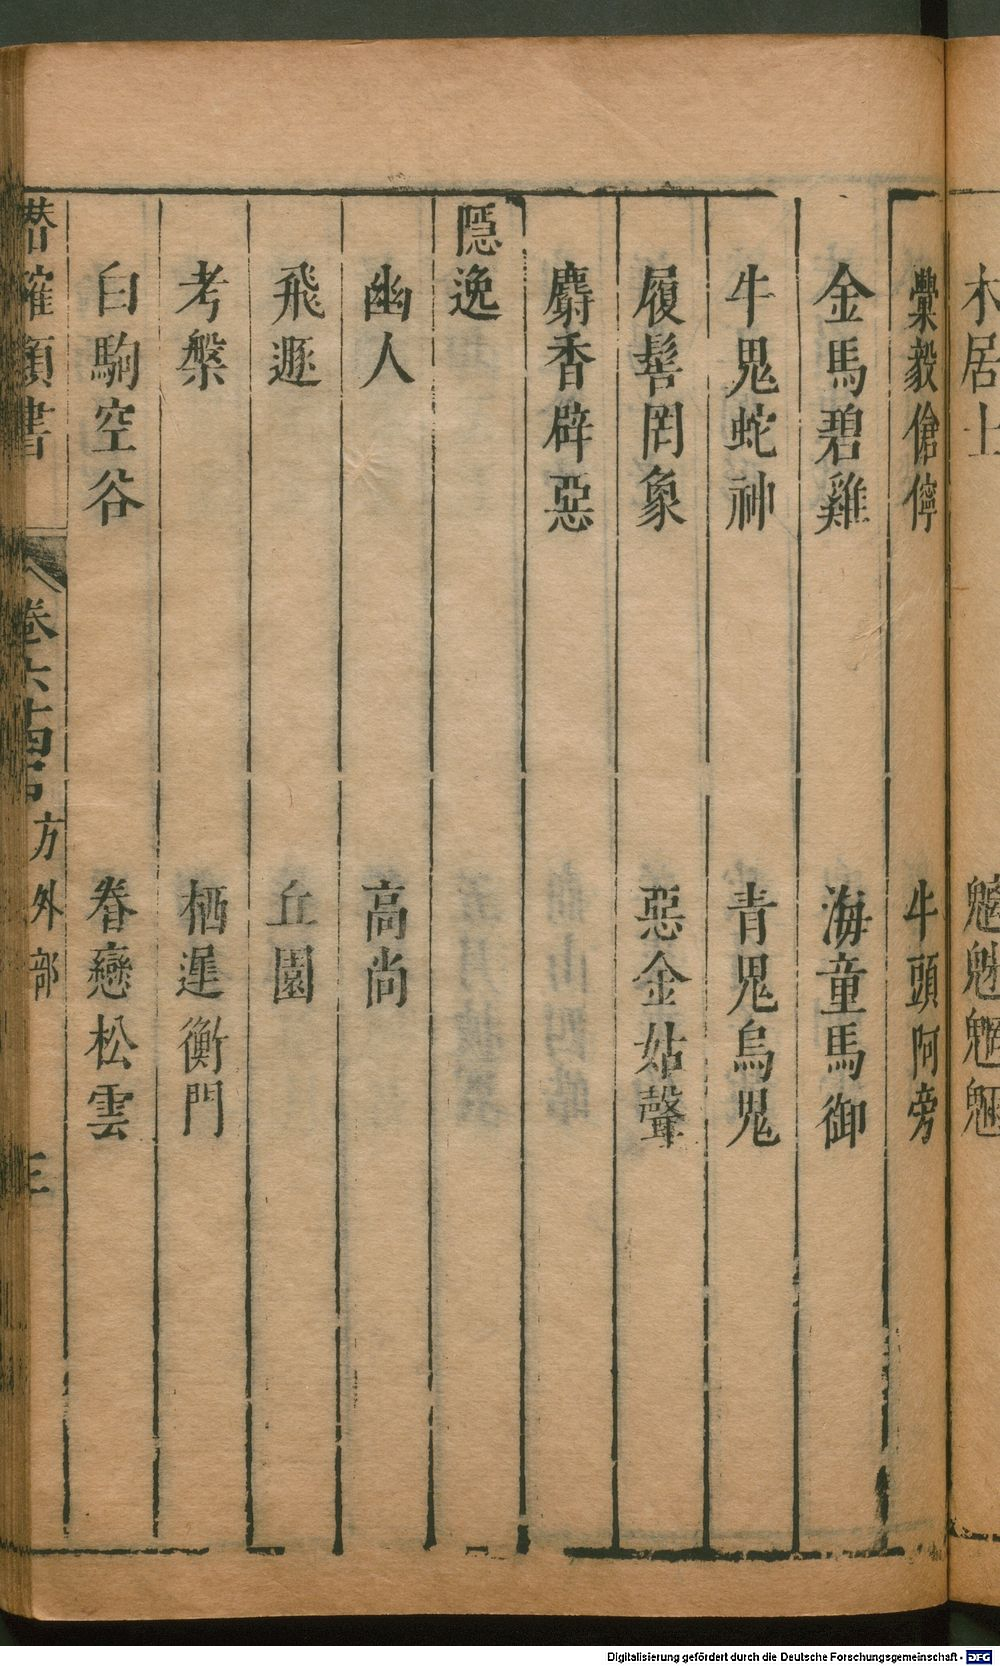 木居士
魑魅魍魎
毅傖儜
牛頭阿旁
金馬碧雞
海童馬御
牛鬼蛇神
青鬼烏鬼
履髻罔象
惡金姑聲
麝香辟惡
隱逸
幽人
高尚
飛遯
丘園
考槃
栖遲衡門
白駒空谷
眷戀松雲
潛確類書
卷六十四
方外部
三
Digitalisierung gefördert durch die Deutsche Forschungsgemeinschaft - DFG